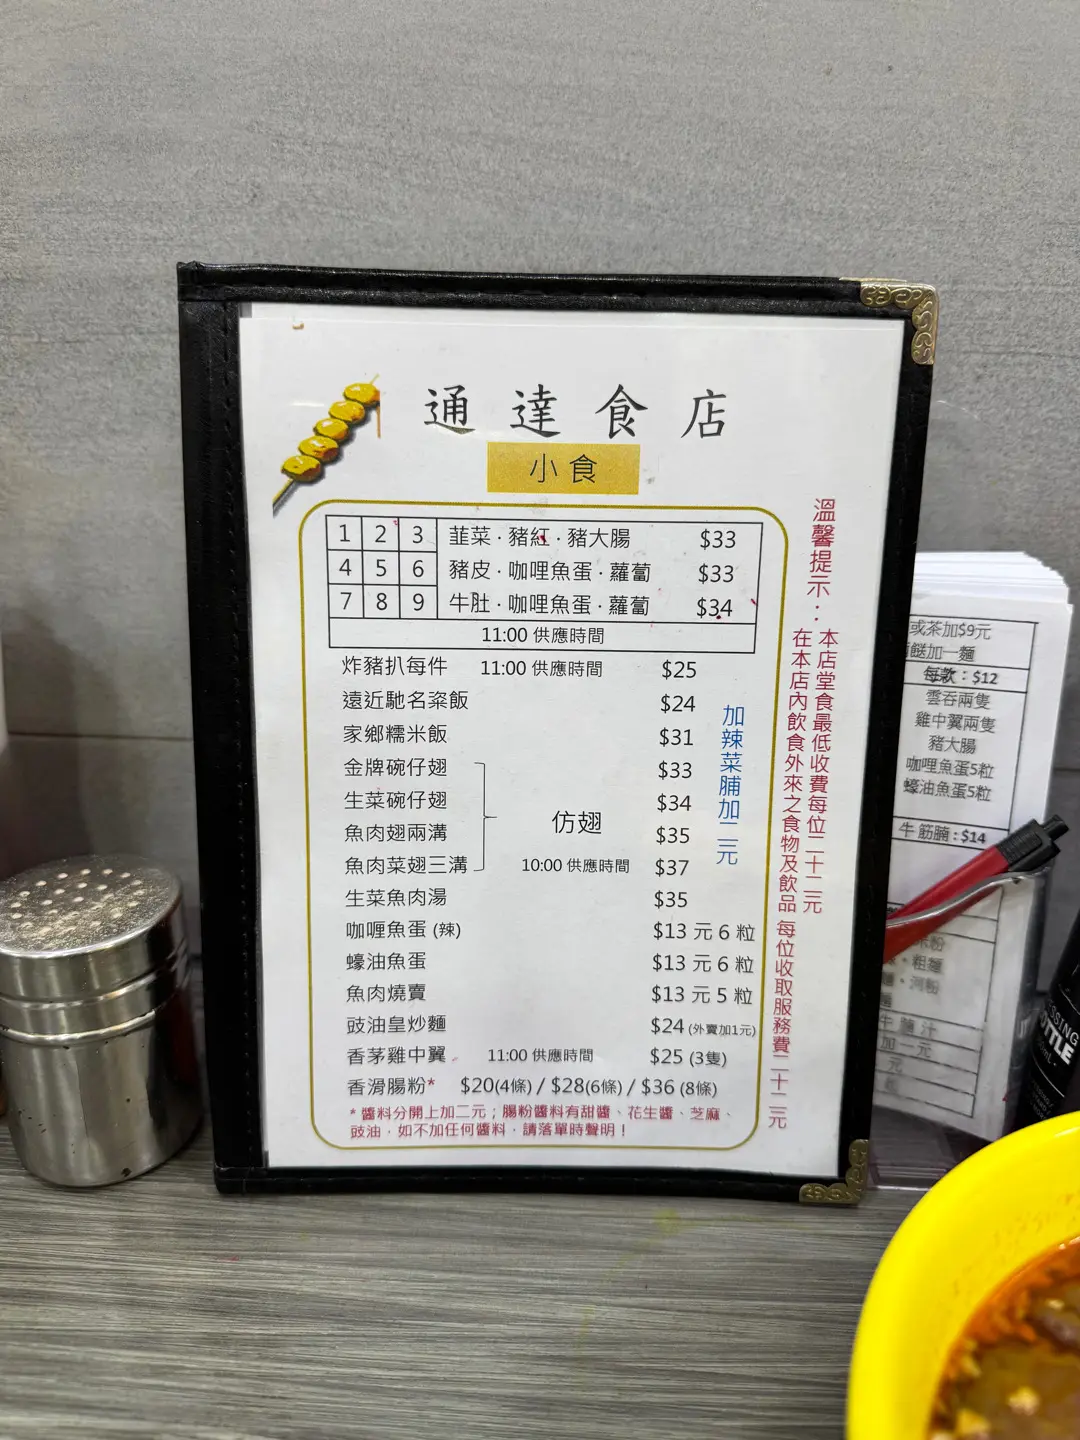 通達食店
小食
1 2 3 韮菜 · 豬紅 · 豬大腸 $33
4 5 6 豬皮 · 咖哩魚蛋 · 蘿蔔 $33
7 8 9 牛肚 · 咖哩魚蛋 · 蘿蔔 $34
11:00 供應時間
炸豬扒每件 11:00 供應時間 $25
遠近馳名粢飯 $24
家鄉糯米飯 $31
金牌碗仔翅 $33
生菜碗仔翅 $34
魚肉翅兩溝 $35
魚肉菜翅三溝 $37
仿翅
10:00 供應時間
生菜魚肉湯 $35
咖喱魚蛋 (辣) $13 元 6 粒
蠔油魚蛋 $13 元 6 粒
魚肉燒賣 $13 元 5 粒
豉油皇炒麵 $24 (外賣加1元)
香茅雞中翼 11:00 供應時間 $25 (3隻)
香滑腸粉* $20(4條) / $28(6條) / $36 (8條)
* 醬料分開上加二元；腸粉醬料有甜醬、花生醬、芝麻、
豉油，如不加任何醬料，請落單時聲明！
加辣菜脯加二元
溫馨提示：
本店堂食最低收費每位二十二元
在本店內飲食外來之食物及飲品 每位收取服務費二十二元
或茶加$9元
加一麵
每款：$12
雲吞兩隻
雞中翼兩隻
豬大腸
咖哩魚蛋5粒
蠔油魚蛋5粒
牛筋腩：$14
粗麵
河粉
牛腩汁
加一元
元